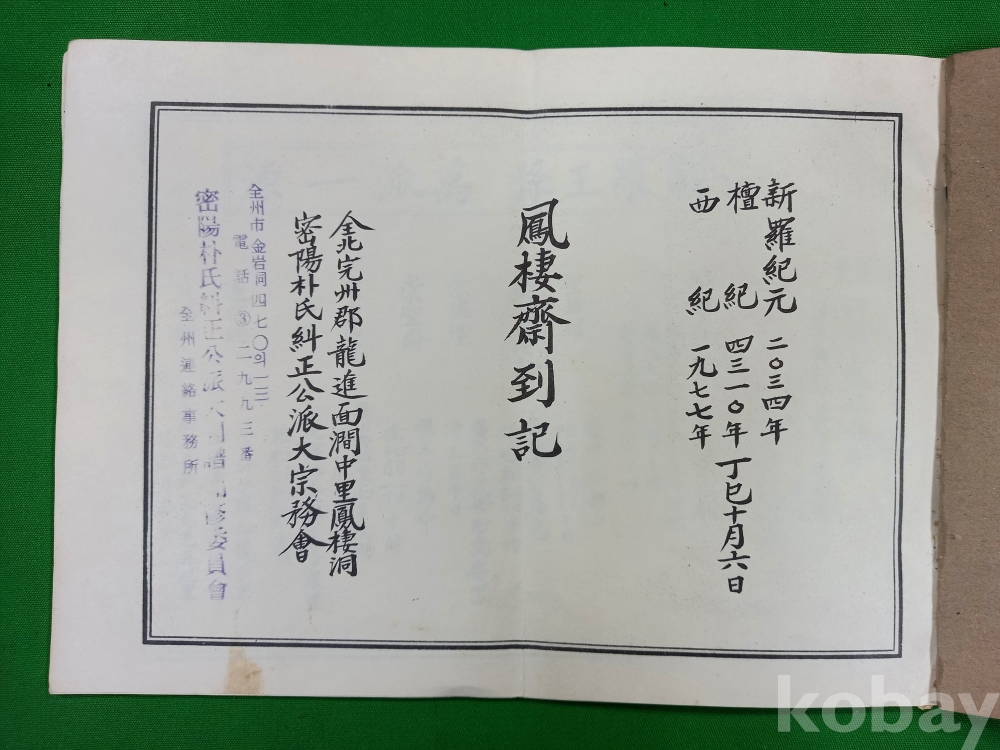 新羅紀元 二〇三四年
檀紀 四三一〇年 丁巳十月六日
西紀 一九七七年
鳳棲齋到記
全北完州郡龍進面澗中里鳳棲洞
密陽朴氏糾正公派大宗務會
全州市金岩洞四七〇의一三
電話③二九九三番
密陽朴氏糾正公派大同譜 修委員會
全州連絡事務所
kobay